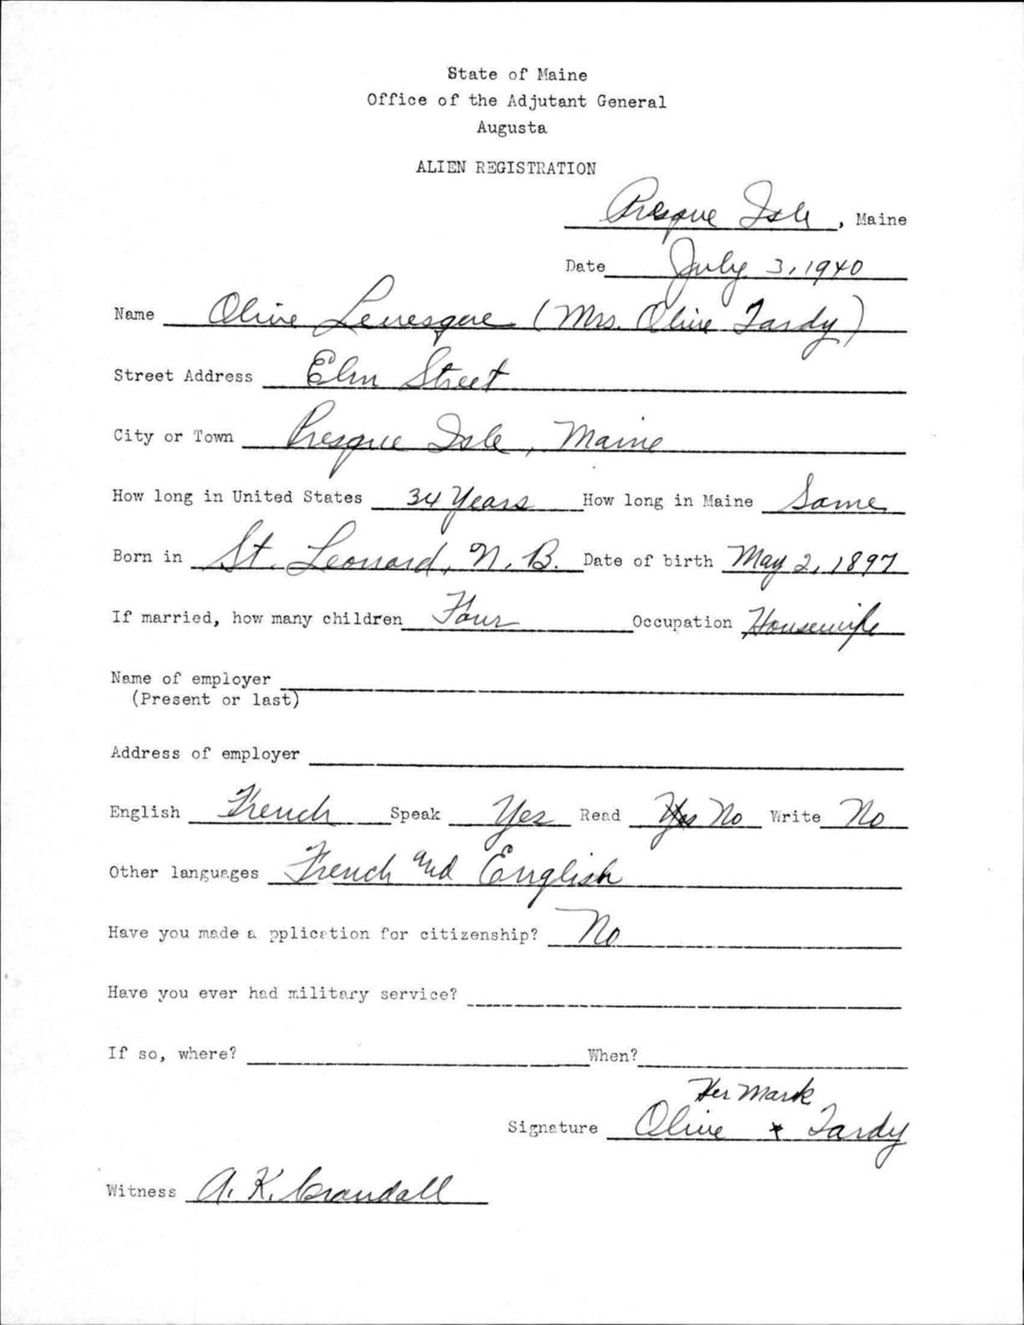 State of Maine
Office of the Adjutant General
Augusta
ALIEN REGISTRATION
Presque Isle, Maine
Date July 3, 1940
Name Olive Levesque (Mrs. Olive Tardy)
Street Address Elm Street
City or Town Presque Isle, Maine
How long in United States 34 Years How long in Maine Same
Born in St. Leonard, N. B. Date of birth May 2, 1897
If married, how many children Four Occupation Housewife
Name of employer
(Present or last)
Address of employer
English French Speak Yes Read Yes No Write No
Other languages French and English
Have you made a pplication for citizenship? No
Have you ever had military service?
If so, where? When?
Her Mark
Signature Olive x Tardy
Witness A. K. Crandall